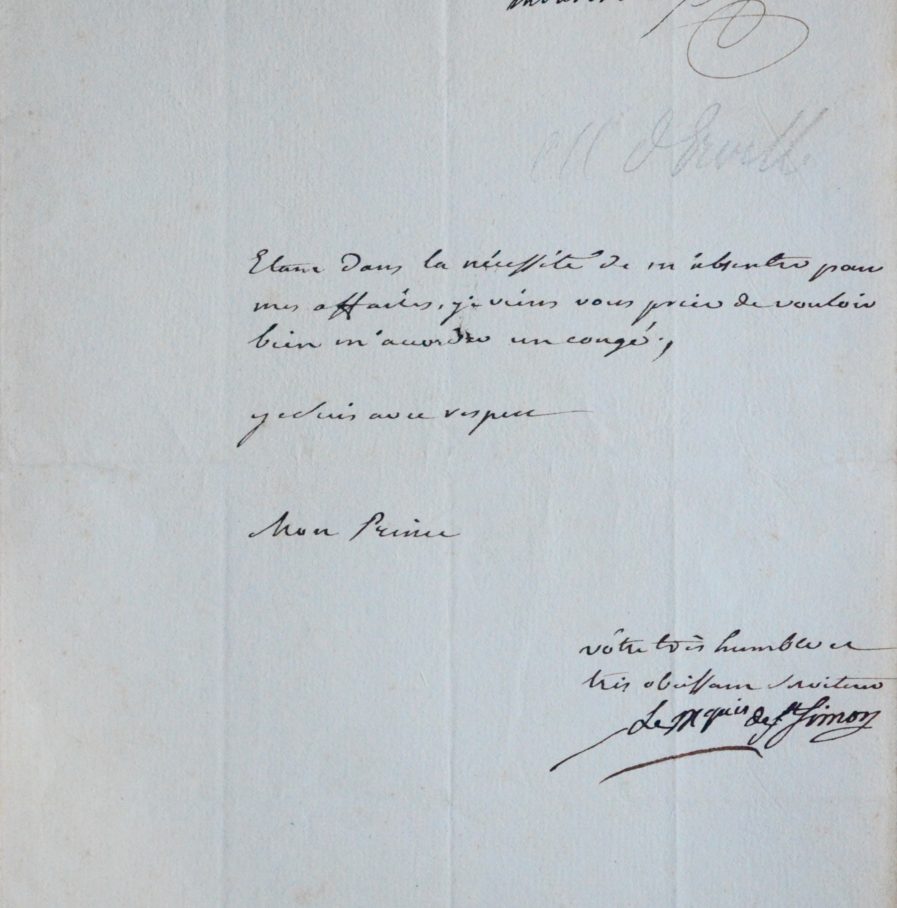 M d'Erville
Etant dans la nécéssité de m'absenter pour
mes affaires, je viens vous prier de vouloir
bien m'accorder un congé,
je suis avec respect
Mon Prince
vôtre très humble et
très obéissant serviteur
Le Mquis de St Simon